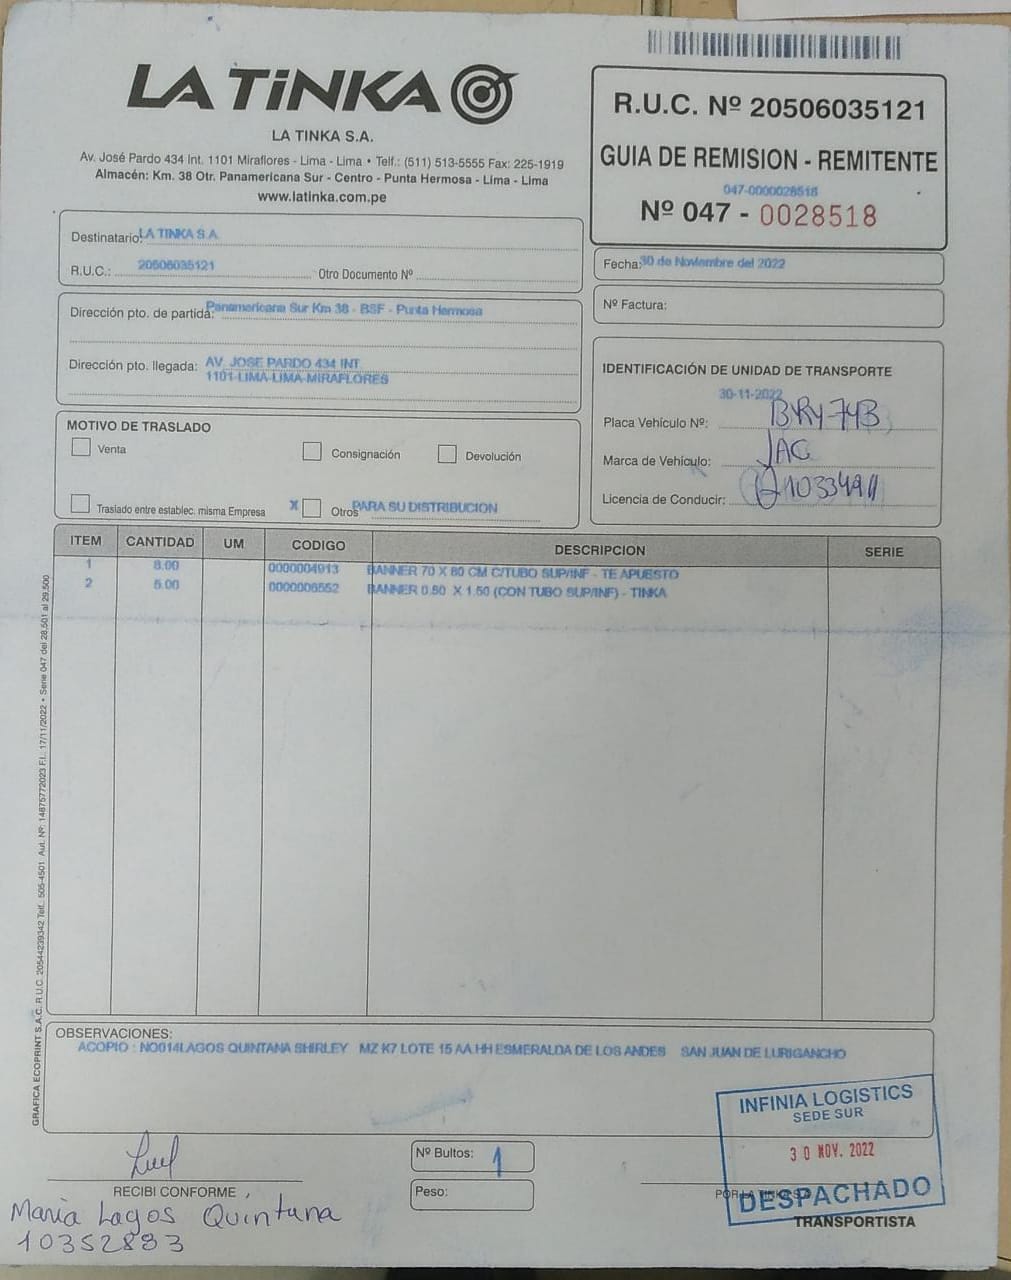 LA TiNKA
LA TINKA S.A.
Av. José Pardo 434 Int. 1101 Miraflores - Lima - Lima • Telf.: (511) 513-5555 Fax: 225-1919
Almacén: Km. 38 Otr. Panamericana Sur - Centro - Punta Hermosa - Lima - Lima
www.latinka.com.pe
R.U.C. Nº 20506035121
GUIA DE REMISION - REMITENTE
047-0000028518
Nº 047 - 0028518
Destinatario: LA TINKA S.A.
R.U.C.: 20506035121 Otro Documento Nº
Fecha: 30 de Noviembre del 2022
Nº Factura:
Dirección pto. de partida: Panamericana Sur Km 38 - BSF - Punta Hermosa
Dirección pto. llegada: AV. JOSE PARDO 434 INT.
1101-LIMA-LIMA-MIRAFLORES
IDENTIFICACIÓN DE UNIDAD DE TRANSPORTE
30-11-2022
Placa Vehículo Nº: BRY-743
Marca de Vehículo: JAC
Licencia de Conducir:
MOTIVO DE TRASLADO
Venta Consignación Devolución
Traslado entre establec. misma Empresa X Otros PARA SU DISTRIBUCION
ITEM CANTIDAD UM CODIGO DESCRIPCION SERIE
1 8.00 0000004913 BANNER 70 X 80 CM C/TUBO SUP/INF - TE APUESTO
2 5.00 0000006552 BANNER 0.50 X 1.50 (CON TUBO SUP/INF) - TINKA
GRAFICA ECOPRINT S.A.C. R.U.C. 20544239342 Telf. 505-4501 Aut. Nº: 14875772023 F.I.: 17/11/2022 • Serie 047 del 28,501 al 29,500
OBSERVACIONES:
ACOPIO : NO014LAGOS QUINTANA SHIRLEY MZ K7 LOTE 15 AA HH ESMERALDA DE LOS ANDES SAN JUAN DE LURIGANCHO
INFINIA LOGISTICS
SEDE SUR
30 NOV. 2022
DESPACHADO
Nº Bultos: 1
Peso:
RECIBI CONFORME
POR LA TINKA S.A.
TRANSPORTISTA
Maria Lagos Quintana
10352893